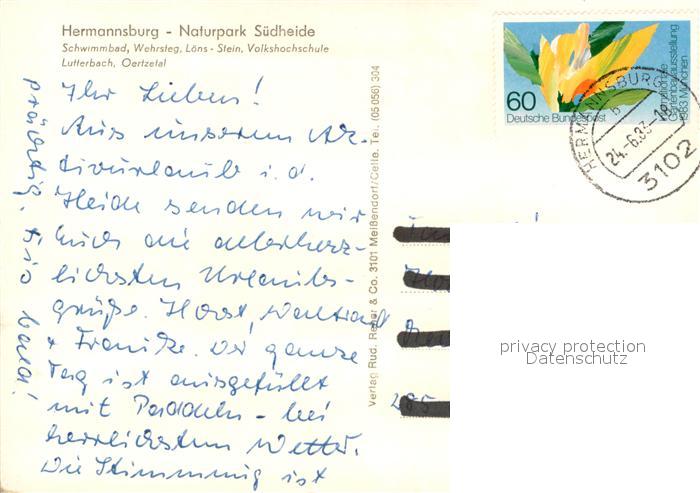 Hermannsburg - Naturpark Südheide
Schwimmbad, Wehrsteg, Löns - Stein, Volkshochschule
Lutterbach, Oertzetal
Ihr Lieben!
Aus unserem Ak-
tivurlaub i. d.
Heide senden wir
Euch die allerherz-
lichsten Urlaubs-
grüße. Horst, Waltraud
+ Frauke. Der ganze
Tag ist ausgefüllt
mit Paddeln - bei
herrlichstem Wetter.
Die Stimmung ist
prächtig. Bis bald!
Verlag Rud. Reher & Co. 3101 Meißendorf/Celle. Tel. (05056) 304
60
Deutsche Bundespost
Internationale
Gartenbauausstellung
1983 München
HERMANNSBURG
24.-6.83.-18
3102
285
privacy protection
Datenschutz